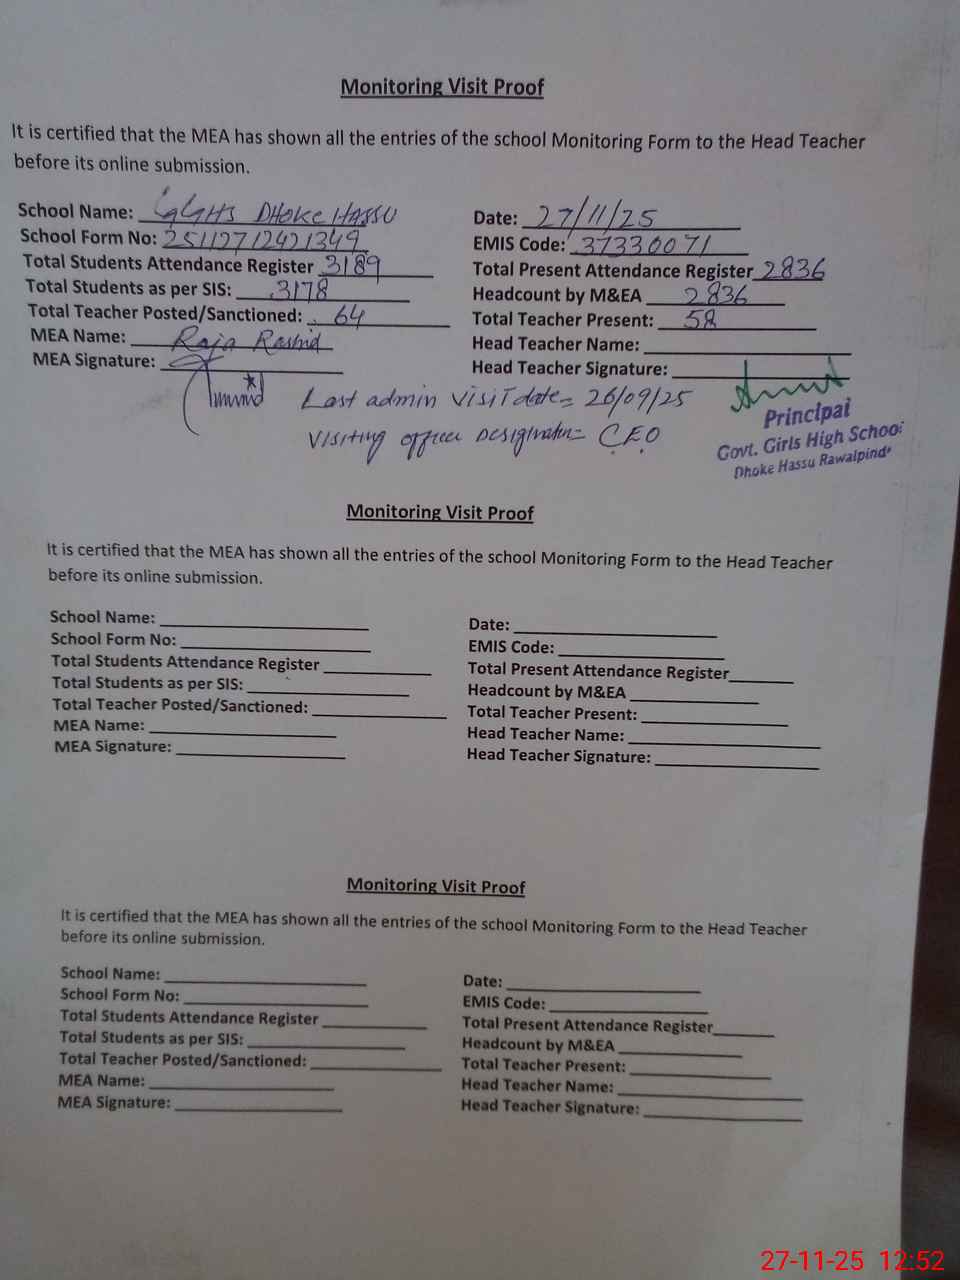 Monitoring Visit Proof
It is certified that the MEA has shown all the entries of the school Monitoring Form to the Head Teacher
before its online submission.
School Name: GGHS DHOKE HASSU
Date: 27/11/25
School Form No:
EMIS Code: 37330071
Total Students Attendance Register 3189
Total Present Attendance Register 2836
Total Students as per SIS: 3178
Headcount by M&EA 2836
Total Teacher Posted/Sanctioned: 64
Total Teacher Present: 58
MEA Name: Raja Rashid
Head Teacher Name:
MEA Signature:
Head Teacher Signature:
Last admin visit date = 26/09/25
Visiting officer Designation = C.E.O
Principal
Govt. Girls High School
Dhoke Hassu Rawalpindi
Monitoring Visit Proof
It is certified that the MEA has shown all the entries of the school Monitoring Form to the Head Teacher
before its online submission.
School Name:
Date:
School Form No:
EMIS Code:
Total Students Attendance Register
Total Present Attendance Register
Total Students as per SIS:
Headcount by M&EA
Total Teacher Posted/Sanctioned:
Total Teacher Present:
MEA Name:
Head Teacher Name:
MEA Signature:
Head Teacher Signature:
Monitoring Visit Proof
It is certified that the MEA has shown all the entries of the school Monitoring Form to the Head Teacher
before its online submission.
School Name:
Date:
School Form No:
EMIS Code:
Total Students Attendance Register
Total Present Attendance Register
Total Students as per SIS:
Headcount by M&EA
Total Teacher Posted/Sanctioned:
Total Teacher Present:
MEA Name:
Head Teacher Name:
MEA Signature:
Head Teacher Signature:
27-11-25 12:52